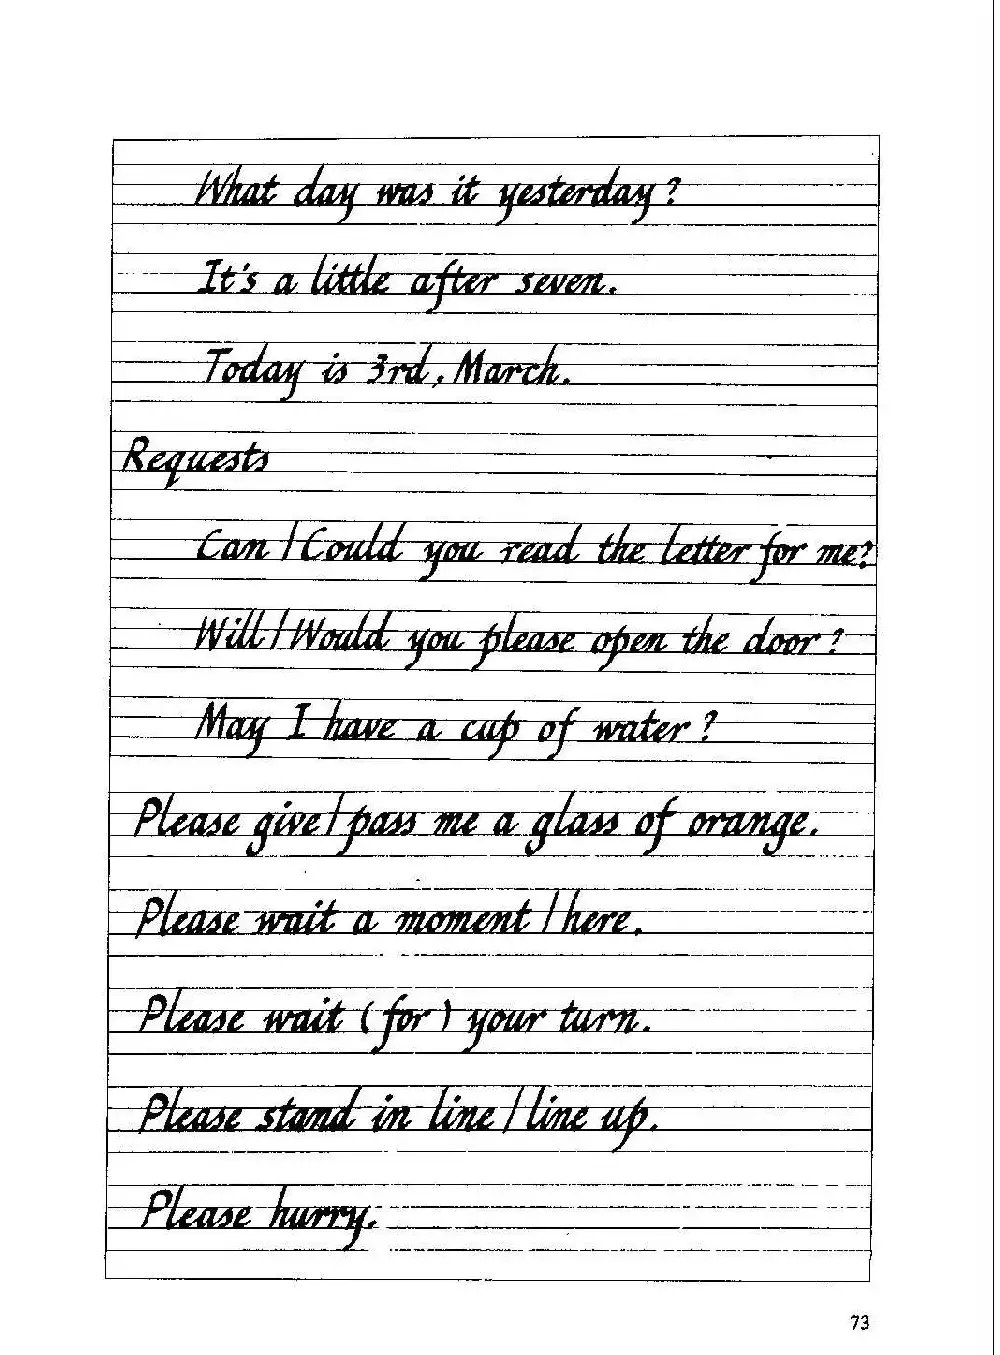 What day was it yesterday?
It's a little after seven.
Today is 3rd, March.
Requests
Can / Could you read the letter for me?
Will / Would you please open the door?
May I have a cup of water?
Please give / pass me a glass of orange.
Please wait a moment / here.
Please wait (for) your turn.
Please stand in line / line up.
Please hurry.
73